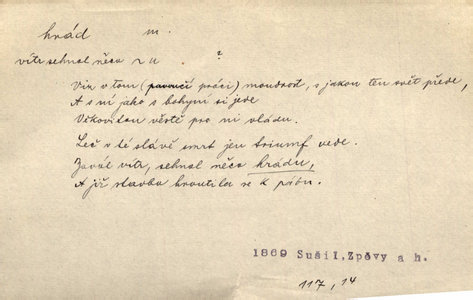 hrád m.
vítr sehnal něco z u ?
Viz v tom (pavoučí práci) moudrost, s jakou ten svět přede,
A s ní jako s bohyní si jede
Věkovitou věstě pro ni vládu.
Leč v té slávě smrt jen triumf vede.
Zavál vítr, sehnal něco hrádu,
A již stavba kroutila se k pádu.
1869 Sušil, Zpěvy a h.
117, 14